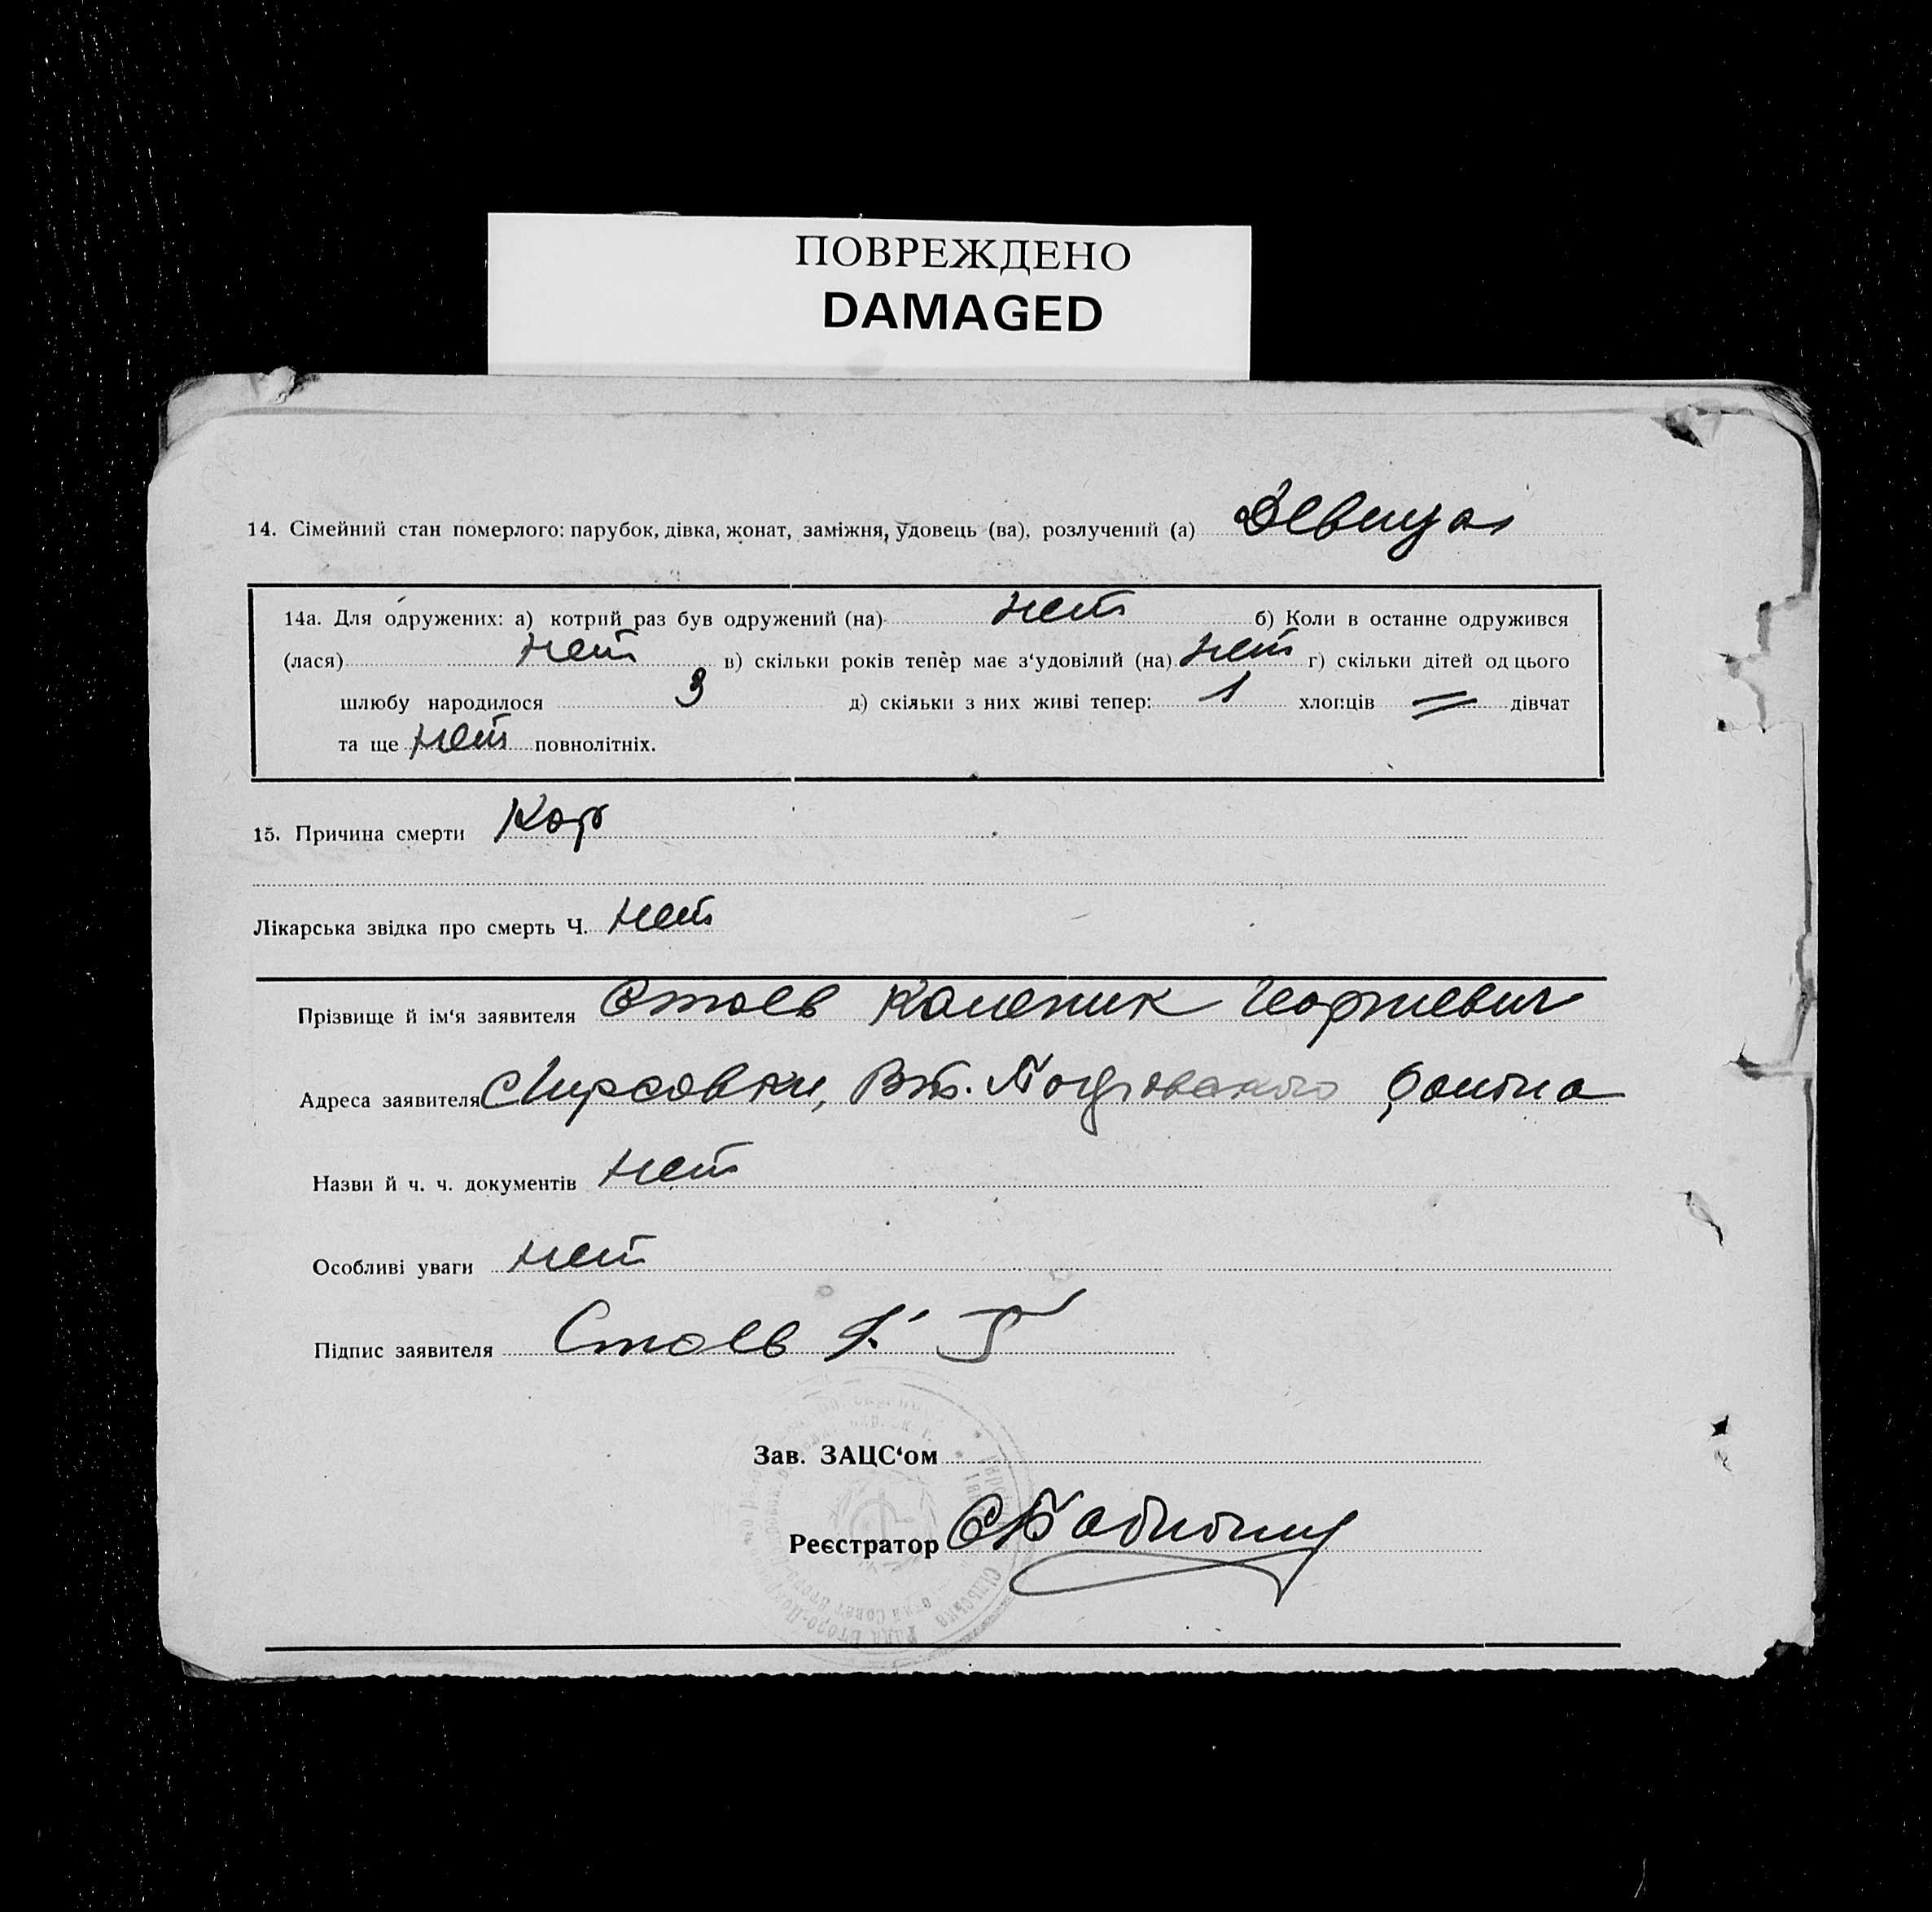 ПОВРЕЖДЕНО
DAMAGED
14. Сімейний стан померлого: парубок, дівка, жонат, заміжня, удовець (ва), розлучений (а) Девица
14а. Для одружених: а) котрий раз був одружений (на) нет б) Коли в останне одружився
(лася) нет в) скільки років тепер має з‘удовілий (на) нет г) скільки дітей од цього
шлюбу народилося 3 д) скільки з них живі тепер: 1 хлопців = дівчат
та ще нет повнолітніх.
15. Причина смерти Кор
Лікарська звідка про смерть Ч. нет
Прізвище й ім‘я заявителя Стоев Георгиевич
Адреса заявителя
Назви й ч. ч. документів нет
Особливі уваги нет
Підпис заявителя Стоев
Зав. ЗАЦС‘ом
Реєстратор